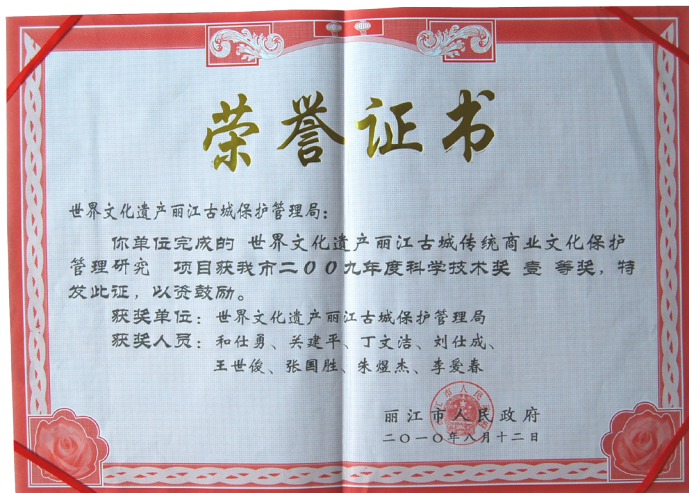 荣誉证书
世界文化遗产丽江古城保护管理局：
你单位完成的 世界文化遗产丽江古城传统商业文化保护
管理研究 项目获我市二〇〇九年度科学技术奖 壹 等奖，特
发此证，以资鼓励。
获奖单位：世界文化遗产丽江古城保护管理局
获奖人员：和仕勇、关建平、丁文洁、刘仕成、
王世俊、张国胜、朱煜杰、李爱春
丽江市人民政府
二〇一〇年八月十二日